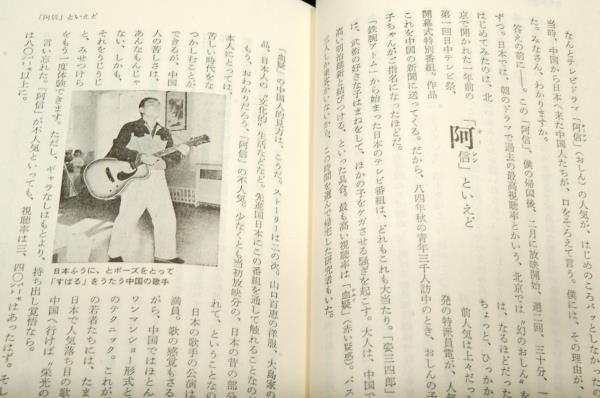 なんとテレビドラマ「阿信」(おしん)の人気が、はじめのころパッとしなかったの
当時、中国から日本へ来た中国人たちが、口をそろえて言う。僕には、その理由が、
た。みなさん、わかりますか。
答えの前に、この「阿信」、僕の帰国後、二月に放映開始、週二回、三十分、一
ずつ。日本では、朝のドラマで過去の最高視聴率とかいう、北京では“幻のおしん”を
はじめてみたのは、北
京で開かれた一年前の
第一回日中テレビ祭、
開幕式特別番組。作品
「阿信」といえど
オーシン
は、なるほどだった
ちょっと、ひっかか
前人気は上々だった
発の特番員電が、人気
これを中国の新聞に送ってくる。だから、八四年秋の青年三千人訪中のとき、おしんの子
子ちゃんがご指名になったほどだ。
「鉄腕アトム」から始まった日本のテレビ番組は、どれもこれも大当たり。「姿三四郎」
は、武術の好きな子はまねをして、ほかの子をケガさせる騒ぎを起こす。大人は、中国で
高い明治維新と結びつける、といった具合。最も高い視聴率は「血疑」(赤い疑惑)。バス
人しか乗客がいないから、この時間を選んで帰宅した研究者もいた。
「阿信」といえど
「血疑」の中国人的見方は、こうだ。ストーリーは二の次、山口百恵の洋服、大島家の
品、日本人の“文化的”生活などなど。先進国日本にこの番組を通して触れることなの
もう、おわかりだろう、「阿信」の不人気。少なくとも当初放映分の、日本の昔の部分
本人にとっては、
苦しい時代をな
つかしむことが
できるが、中国
人の苦しさは、
あんなもんじゃ
ない、しかも、
それをうじうじ
と、みせつける
をもう一度体験できます。ただし、ギャラなしはもとより、持ち出し覚悟なら。
言い忘れた。「阿信」が不人気といっても、視聴率は三、四〇パーセントはあったはず。そし
は八〇パーセント以上に。
れて、ということなの
日本の歌手の公演は
満員。歌の感覚もさる
がら、中国ではほとん
ワンマンショー形式と
のテクニック。これが
の若者たちには、たま
日本で人気落ち目の歌
中国へ行けば“栄光の
日本ふうに、とポーズをとって
「すばる」をうたう中国の歌手